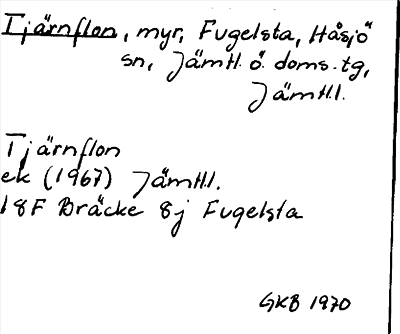 Tjärnflon, myr, Fugelsta, Håsjö
sn, Jämtl. ö. doms.tg,
Jämtl.l.
Tjärnflon
ek (1967) Jämtl.l.
18F Bräcke 8j Fugelsta
GKB 1970